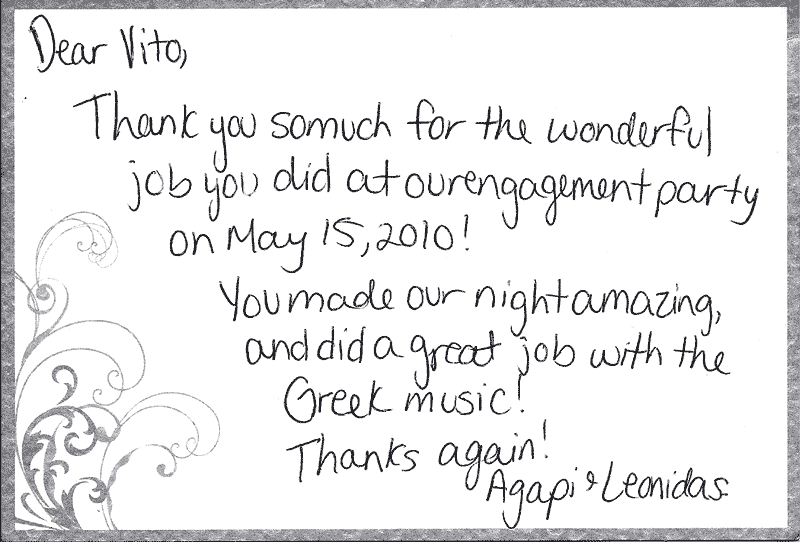 Dear Vito,
Thank you so much for the wonderful
job you did at our engagement party
on May 15, 2010!
You made our night amazing,
and did a great job with the
Greek music!
Thanks again!
Agapi & Leonidas